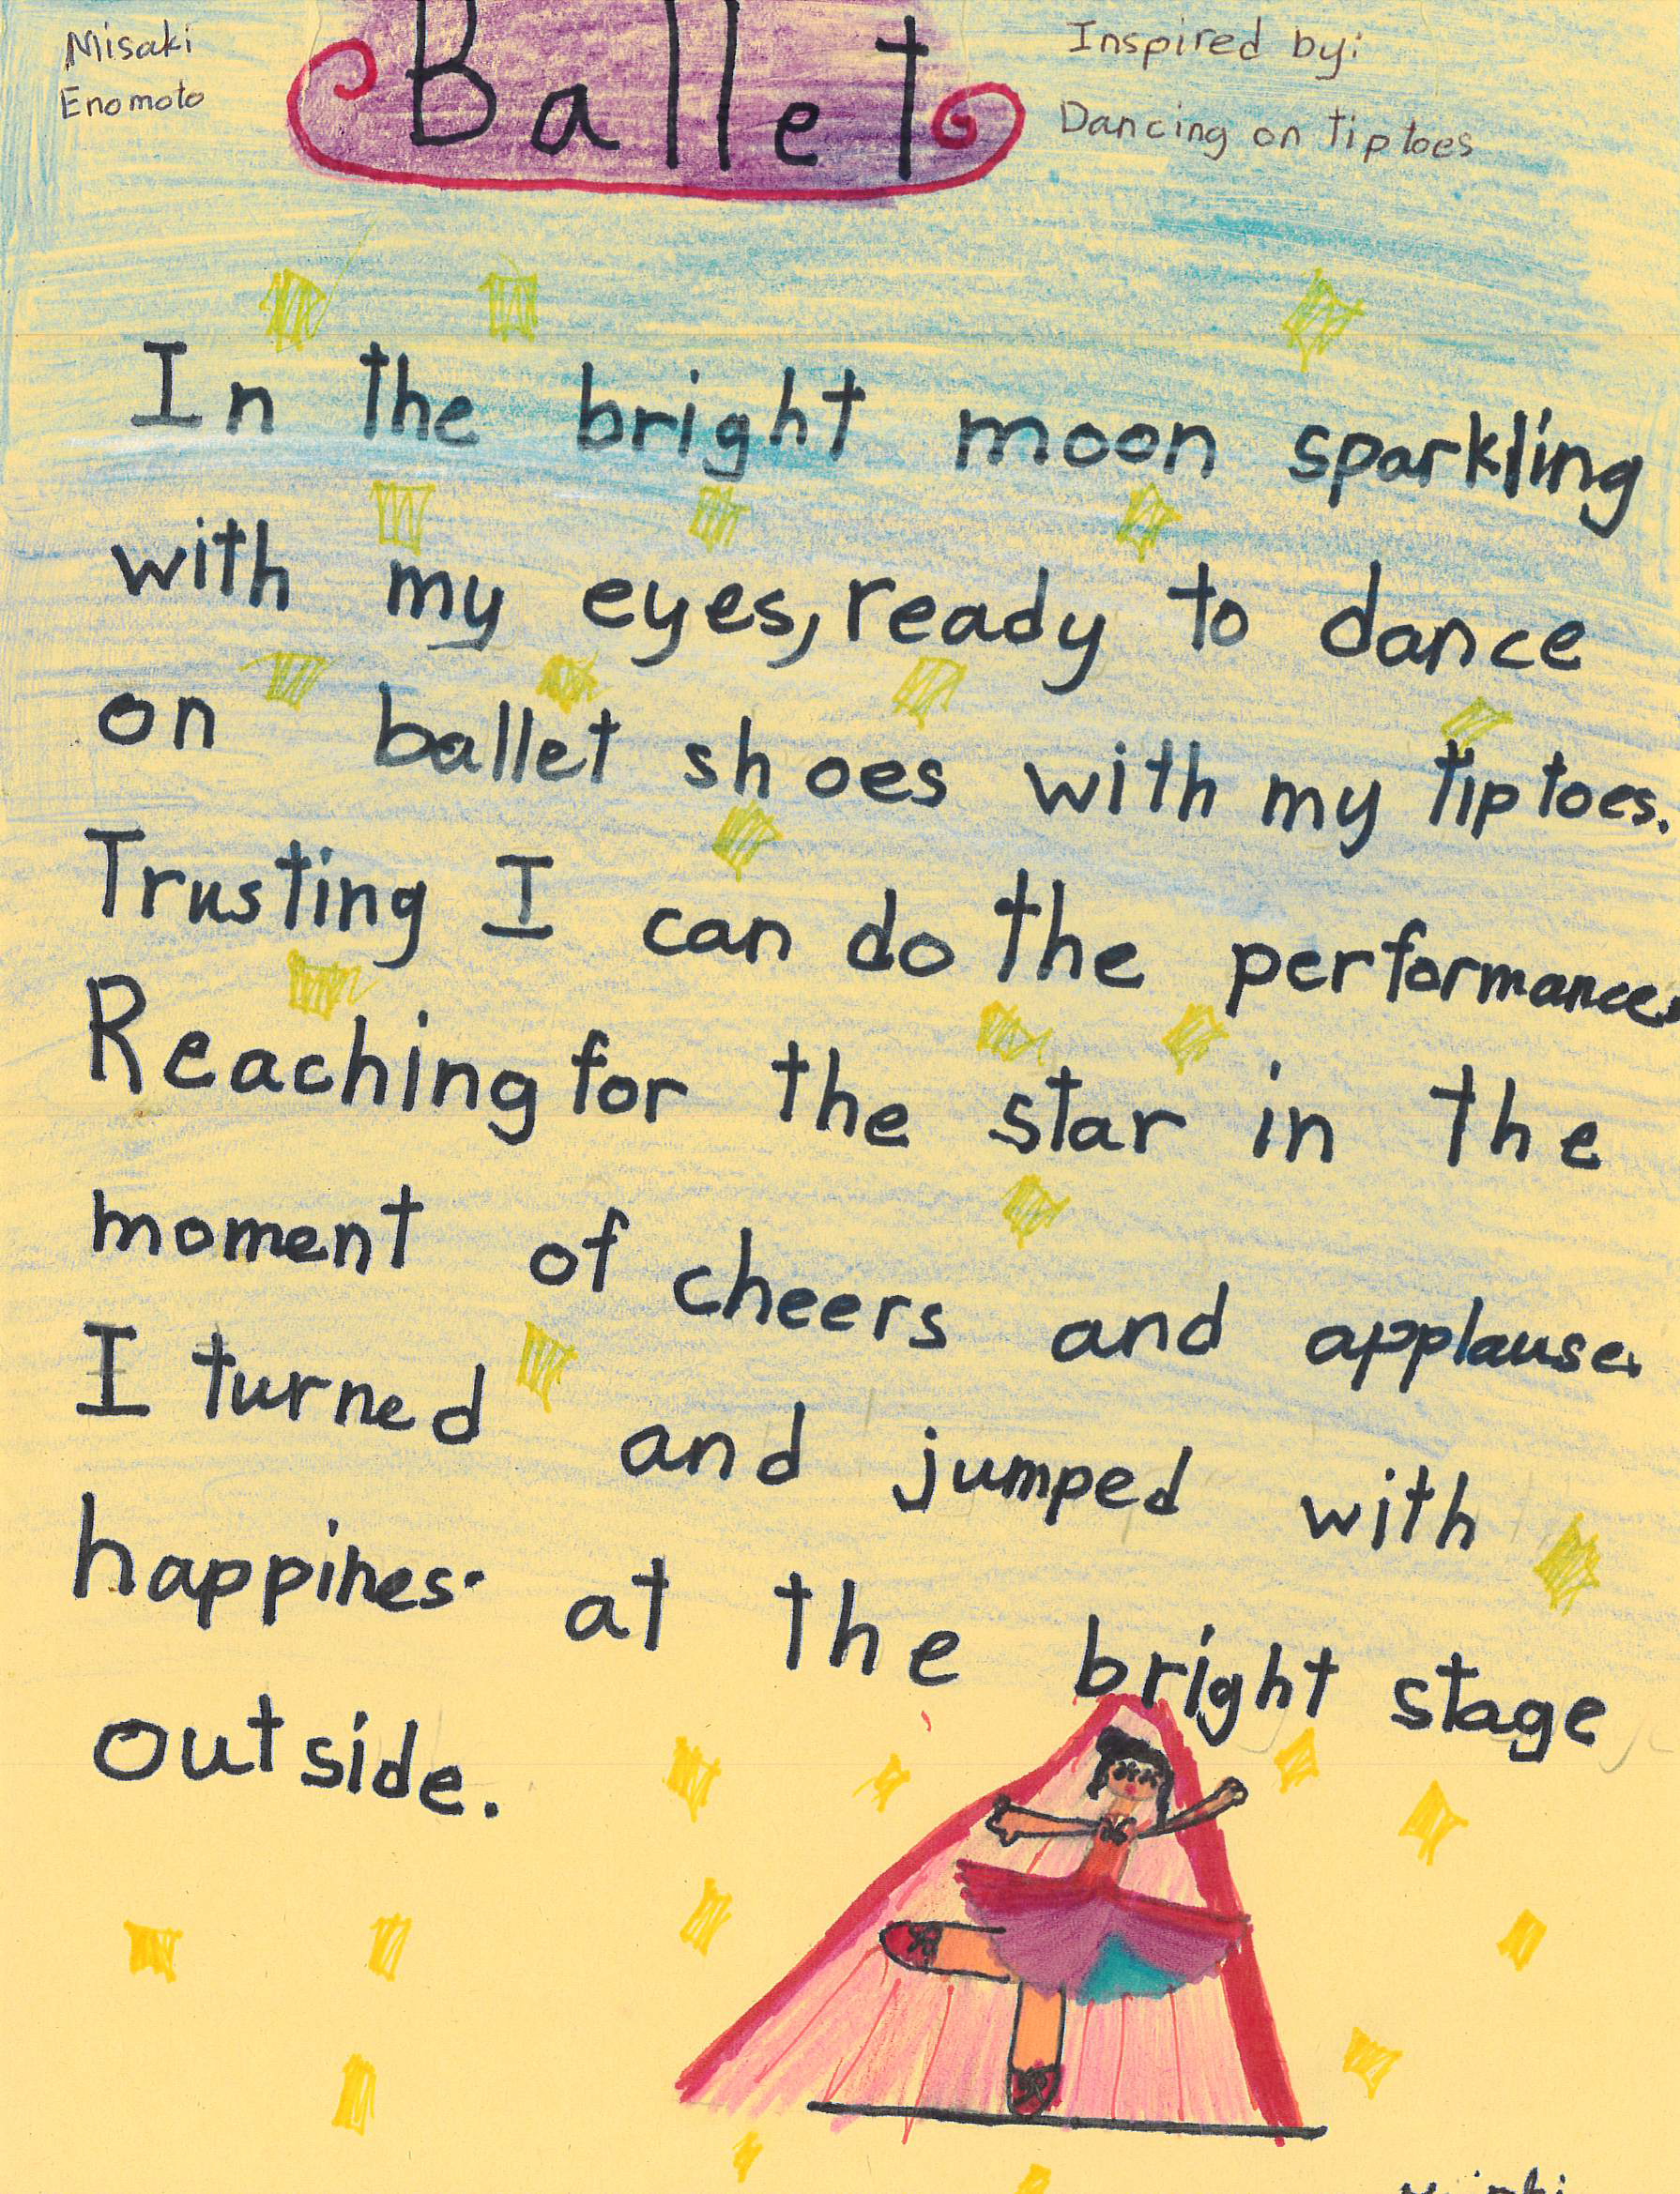 Misaki
Enomoto
Ballet
Inspired by:
Dancing on tiptoes
In the bright moon sparkling
with my eyes, ready to dance
on ballet shoes with my tiptoes.
Trusting I can do the performance.
Reaching for the star in the
moment of cheers and applause.
I turned and jumped with
happines. at the bright stage
outside.